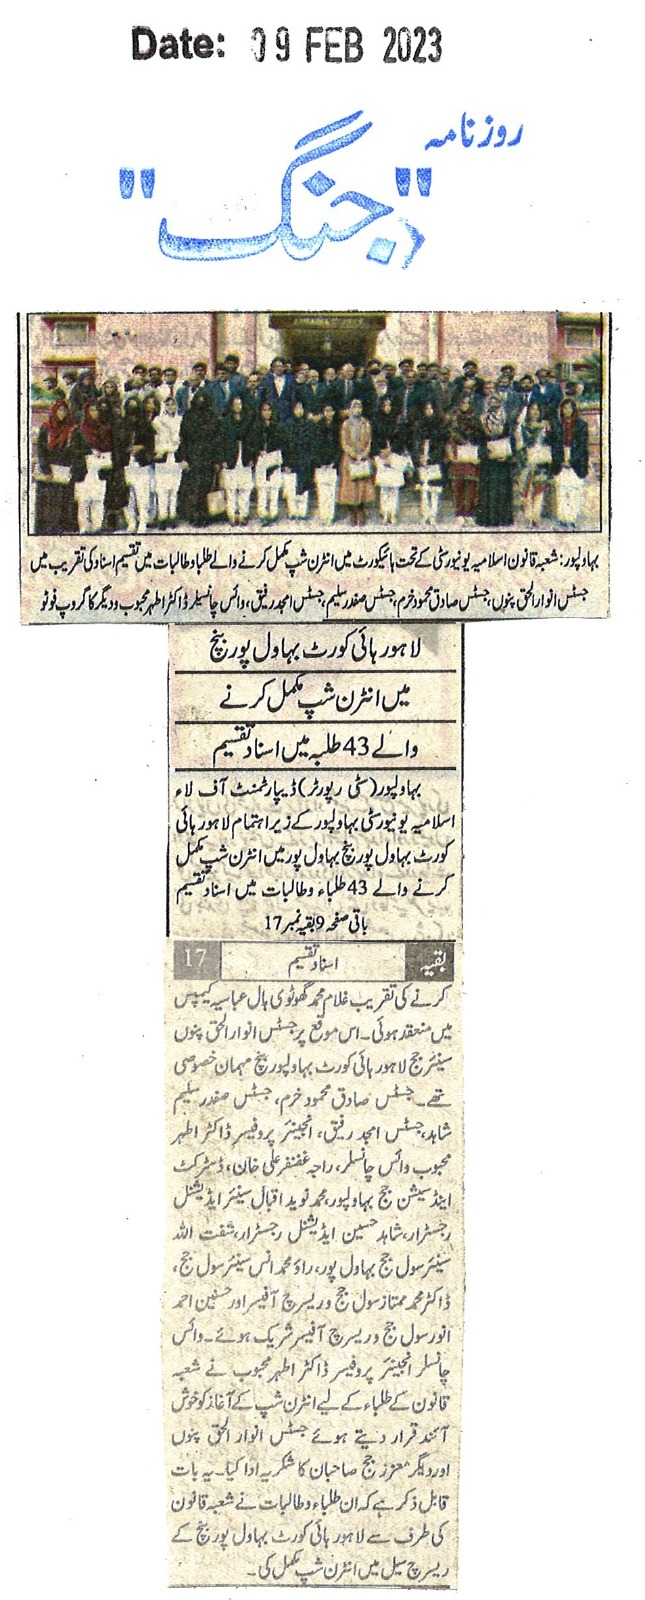 Date: 09 FEB 2023
روزنامہ
"جنگ"
بہاولپور: شعبہ قانون اسلامیہ یونیورسٹی کے تحت ہائیکورٹ میں انٹرن شپ مکمل کرنے والے طلبا و طالبات میں تقسیم اسناد کی تقریب میں
جسٹس انوارالحق پنوں، جسٹس صادق محمود خرم، جسٹس صفدر سلیم، جسٹس امجد رفیق، وائس چانسلر ڈاکٹر اطہر محبوب و دیگر کا گروپ فوٹو
لاہور ہائی کورٹ بہاول پور بنچ
میں انٹرن شپ مکمل کرنے
والے 43 طلبہ میں اسناد تقسیم
بہاولپور (سٹی رپورٹر) ڈیپارٹمنٹ آف لاء
اسلامیہ یونیورسٹی بہاولپور کے زیر اہتمام لاہور ہائی
کورٹ بہاول پور بنچ بہاول پور میں انٹرن شپ مکمل
کرنے والے 43 طلباء و طالبات میں اسناد تقسیم
باقی صفحہ 9 بقیہ نمبر 17
بقیہ اسناد تقسیم 17
کرنے کی تقریب غلام محمد گھوٹوی ہال عباسیہ کیمپس
میں منعقد ہوئی۔ اس موقع پر جسٹس انوار الحق پنوں
سینئر جج لاہور ہائی کورٹ بہاولپور بنچ مہمان خصوصی
تھے۔ جسٹس صادق محمود خرم، جسٹس صفدر سلیم
شاہد، جسٹس امجد رفیق، انجینئر پروفیسر ڈاکٹر اطہر
محبوب وائس چانسلر، راجہ غضنفر علی خان، ڈسٹرکٹ
اینڈ سیشن جج بہاولپور، محمد نوید اقبال سینئر ایڈیشنل
رجسٹرار، شاہد حسین ایڈیشنل رجسٹرار، شفقت اللہ
سینئر سول جج بہاول پور، راؤ محمد انس سینئر سول جج،
ڈاکٹر محمد ممتاز سول جج و ریسرچ آفیسر اور حسنین احمد
انور سول جج و ریسرچ آفیسر شریک ہوئے۔ وائس
چانسلر انجینئر پروفیسر ڈاکٹر اطہر محبوب نے شعبہ
قانون کے طلباء کے لیے انٹرن شپ کے آغاز کو خوش
آئند قرار دیتے ہوئے جسٹس انوار الحق پنوں
اور دیگر معزز جج صاحبان کا شکریہ ادا کیا۔ یہ بات
قابل ذکر ہے کہ ان طلباء و طالبات نے شعبہ قانون
کی طرف سے لاہور ہائی کورٹ بہاول پور بنچ کے
ریسرچ سیل میں انٹرن شپ مکمل کی۔